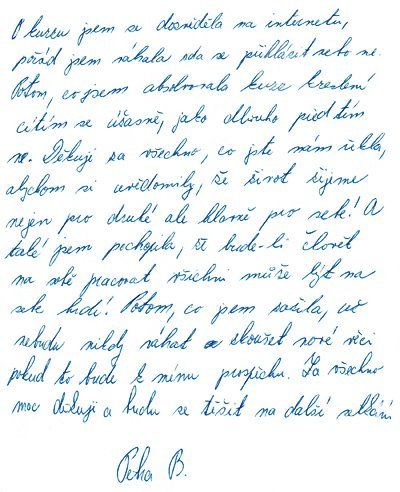 O kurzu jsem se dozviděla na internetu,
pořád jsem váhala zda se přihlásit nebo ne.
Potom, co jsem absolvovala kurz kreslení
cítím se úžasně, jako dlouho před tím
ne. Děkuji za všechno, co jste nám řekla,
abychom si uvědomily, že život žijeme
nejen pro druhé ale hlavně pro sebe! A
také jsem pochopila, že bude-li člověk
na sobě pracovat všichni může být na
sebe hrdí! Potom, co jsem zažila, už
nebudu nikdy váhat a zkoušet nové věci
pokud to bude k mému prospěchu. Za všechno
moc děkuji a budu se těšit na další setkání
B.